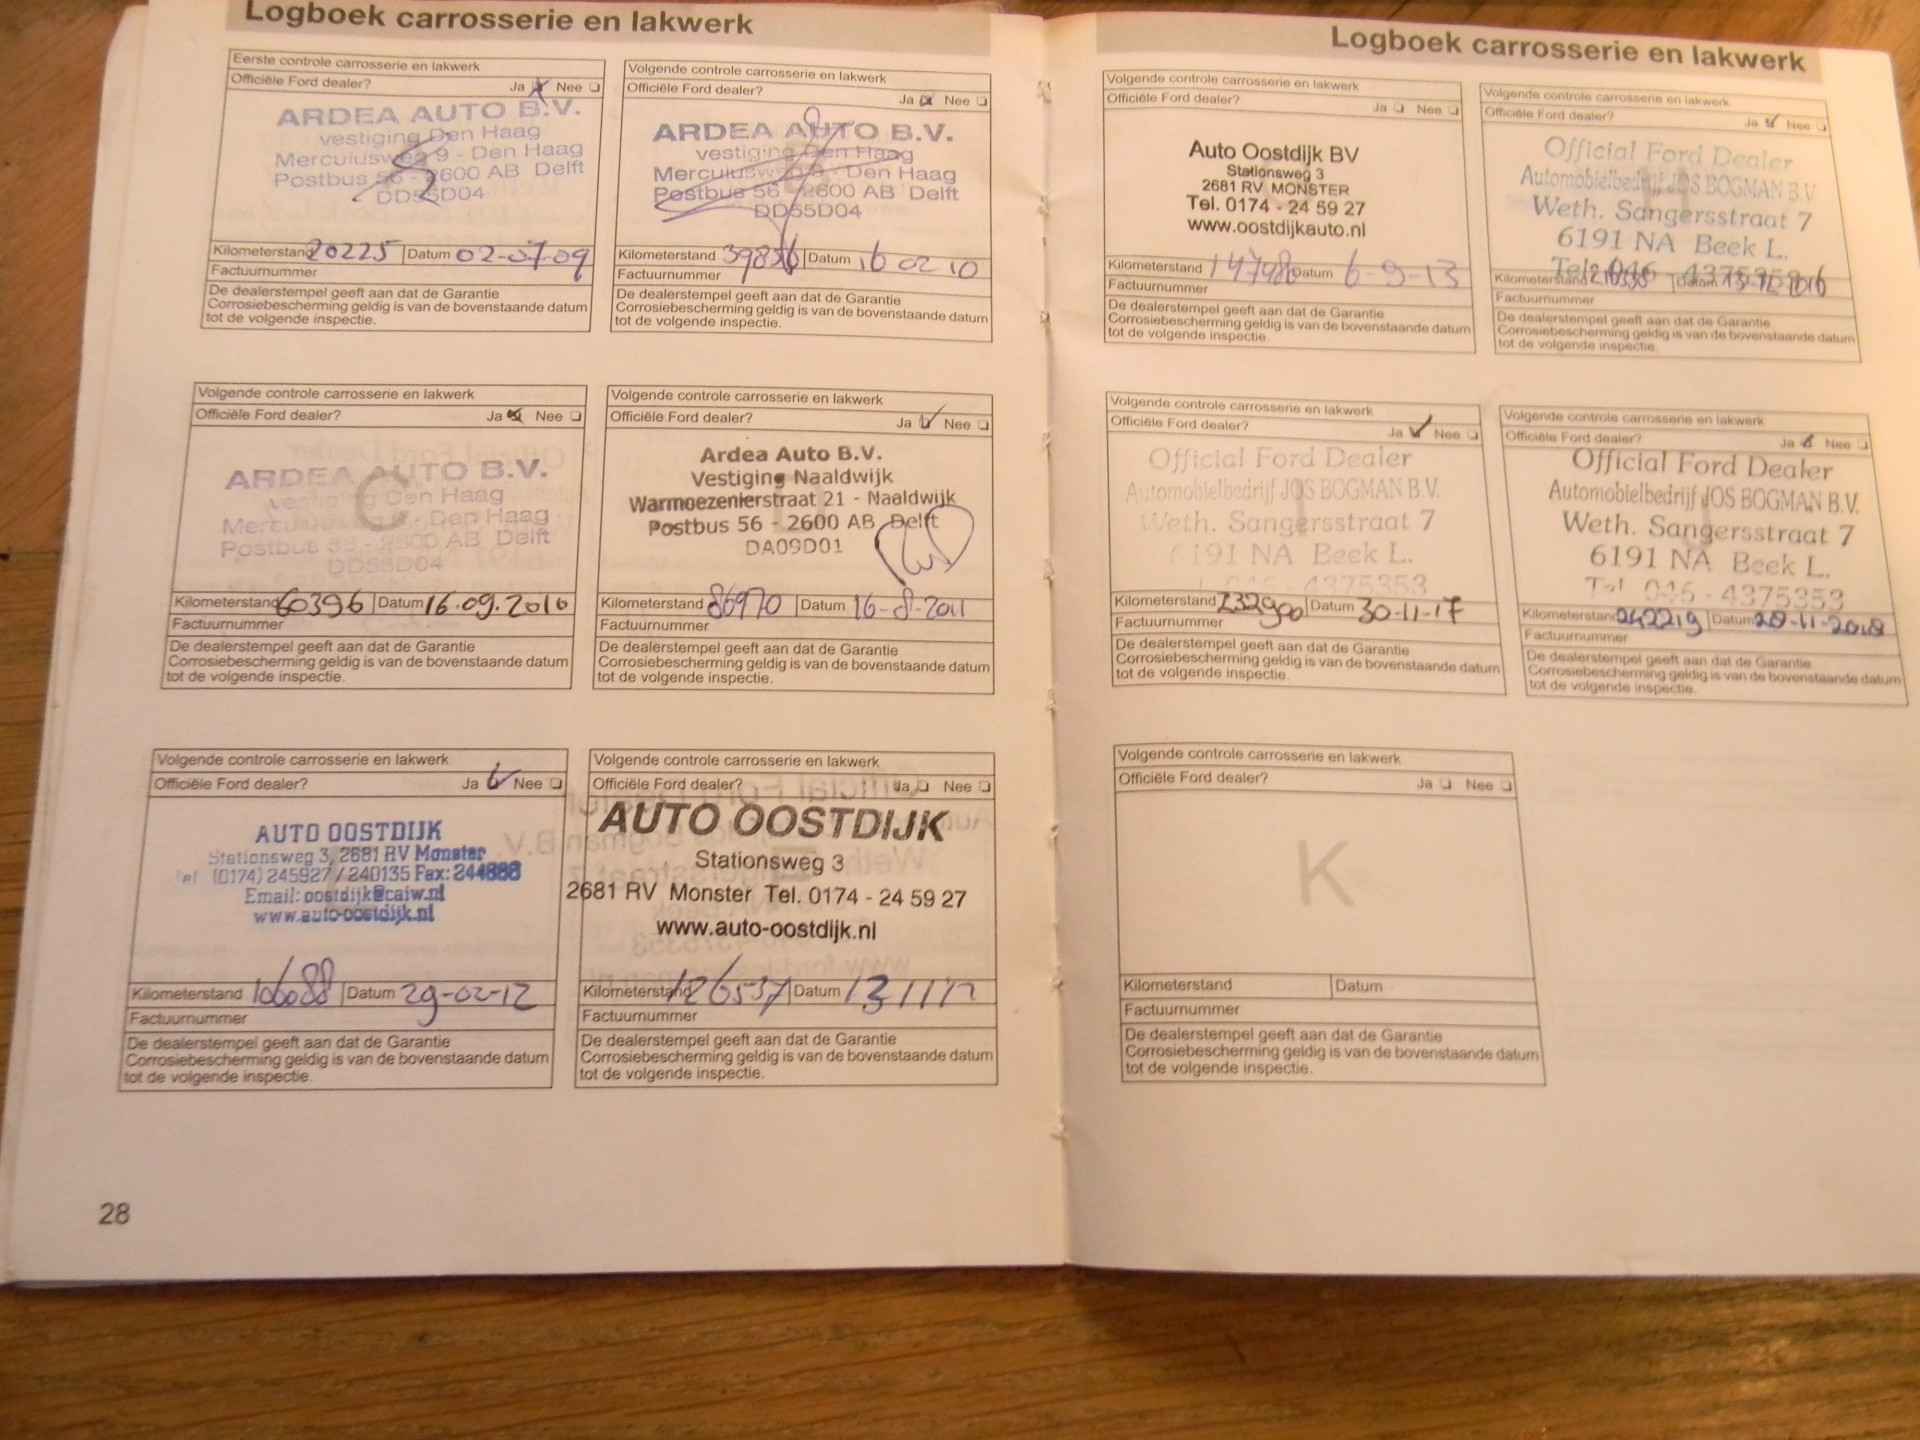 Logboek carrosserie en lakwerk
Eerste controle carrosserie en lakwerk
Officiële Ford dealer? Ja Nee
ARDEA AUTO B.V.
vestiging Den Haag
Mercuriusweg 9 - Den Haag
Postbus 56 - 2600 AB Delft
DD55D04
Kilometerstand 20225 Datum 02-07-09
Factuurnummer
De dealerstempel geeft aan dat de Garantie
Corrosiebescherming geldig is van de bovenstaande datum
tot de volgende inspectie.
Volgende controle carrosserie en lakwerk
Officiële Ford dealer? Ja Nee
ARDEA AUTO B.V.
vestiging Den Haag
Mercuriusweg 9 - Den Haag
Postbus 56 - 2600 AB Delft
DD55D04
Kilometerstand 39856 Datum 16 02 10
Factuurnummer
De dealerstempel geeft aan dat de Garantie
Corrosiebescherming geldig is van de bovenstaande datum
tot de volgende inspectie.
Volgende controle carrosserie en lakwerk
Officiële Ford dealer? Ja Nee
C
ARDEA AUTO B.V.
vestiging Den Haag
Mercuriusweg 9 - Den Haag
Postbus 56 - 2600 AB Delft
DD55D04
Kilometerstand 60396 Datum 16.09.2010
Factuurnummer
De dealerstempel geeft aan dat de Garantie
Corrosiebescherming geldig is van de bovenstaande datum
tot de volgende inspectie.
Volgende controle carrosserie en lakwerk
Officiële Ford dealer? Ja Nee
Ardea Auto B.V.
Vestiging Naaldwijk
Warmoezenierstraat 21 - Naaldwijk
Postbus 56 - 2600 AB Delft
DA09D01
Kilometerstand 86970 Datum 16-8-2011
Factuurnummer
De dealerstempel geeft aan dat de Garantie
Corrosiebescherming geldig is van de bovenstaande datum
tot de volgende inspectie.
Volgende controle carrosserie en lakwerk
Officiële Ford dealer? Ja Nee
AUTO OOSTDIJK
Stationsweg 3, 2681 RV Monster
Tel (0174) 245927 / 240135 Fax: 244888
Email: oostdijk@caiw.nl
www.auto-oostdijk.nl
Kilometerstand 106088 Datum 29-02-12
Factuurnummer
De dealerstempel geeft aan dat de Garantie
Corrosiebescherming geldig is van de bovenstaande datum
tot de volgende inspectie.
Volgende controle carrosserie en lakwerk
Officiële Ford dealer? Ja Nee
AUTO OOSTDIJK
Stationsweg 3
2681 RV Monster Tel. 0174 - 24 59 27
www.auto-oostdijk.nl
Kilometerstand 126537 Datum
Factuurnummer
De dealerstempel geeft aan dat de Garantie
Corrosiebescherming geldig is van de bovenstaande datum
tot de volgende inspectie.
28
Logboek carrosserie en lakwerk
Volgende controle carrosserie en lakwerk
Officiële Ford dealer? Ja Nee
Auto Oostdijk BV
Stationsweg 3
2681 RV MONSTER
Tel. 0174 - 24 59 27
www.oostdijkauto.nl
Kilometerstand 147980 Datum 6-9-13
Factuurnummer
De dealerstempel geeft aan dat de Garantie
Corrosiebescherming geldig is van de bovenstaande datum
tot de volgende inspectie.
Volgende controle carrosserie en lakwerk
Officiële Ford dealer? Ja Nee
Official Ford Dealer
Automobielbedrijf JOS BOGMAN B.V.
Weth. Sangersstraat 7
6191 NA Beek L.
Tel. 046 - 4375353
Kilometerstand Datum
Factuurnummer
De dealerstempel geeft aan dat de Garantie
Corrosiebescherming geldig is van de bovenstaande datum
tot de volgende inspectie.
Volgende controle carrosserie en lakwerk
Officiële Ford dealer? Ja Nee
Official Ford Dealer
Automobielbedrijf JOS BOGMAN B.V.
Weth. Sangersstraat 7
6191 NA Beek L.
046 - 4375353
Kilometerstand 232900 Datum 30-11-17
Factuurnummer
De dealerstempel geeft aan dat de Garantie
Corrosiebescherming geldig is van de bovenstaande datum
tot de volgende inspectie.
Volgende controle carrosserie en lakwerk
Officiële Ford dealer? Ja Nee
Official Ford Dealer
Automobielbedrijf JOS BOGMAN B.V.
Weth. Sangersstraat 7
6191 NA Beek L.
Tel 046 - 4375353
Kilometerstand 242219 Datum 28-11-2018
Factuurnummer
De dealerstempel geeft aan dat de Garantie
Corrosiebescherming geldig is van de bovenstaande datum
tot de volgende inspectie.
Volgende controle carrosserie en lakwerk
Officiële Ford dealer? Ja Nee
K
Kilometerstand Datum
Factuurnummer
De dealerstempel geeft aan dat de Garantie
Corrosiebescherming geldig is van de bovenstaande datum
tot de volgende inspectie.